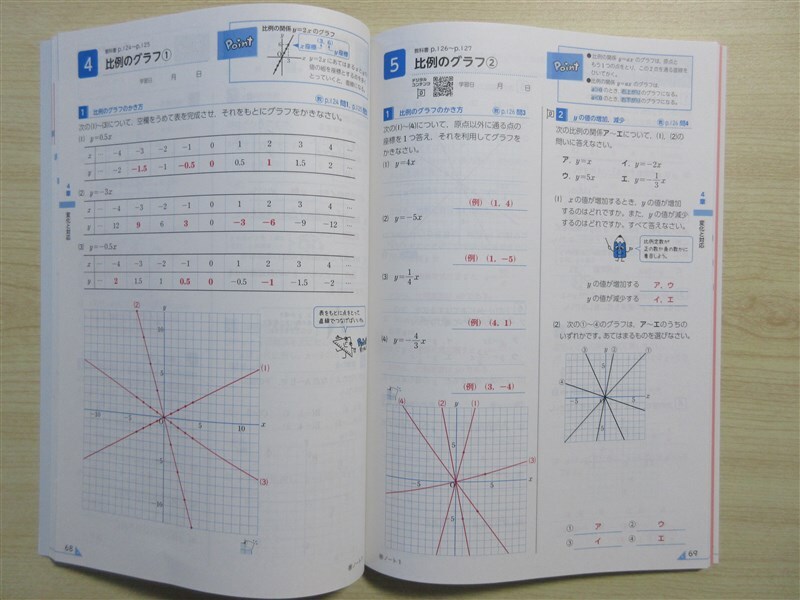 4
教科書 p.124〜p.125
比例のグラフ①
学習日 月 日
Point
比例の関係 y=2xのグラフ
(3, 6)
x座標 y座標
1 比例のグラフのかき方
教 p.124 問1
次の(1)〜(3)について，空欄をうめて表を完成させ，それをもとにグラフをかきなさい。
(1) y=0.5x
x … −4 −3 −2 −1 0 1 2 3 4 …
y … −2 −1.5 −1 −0.5 0 0.5 1 1.5 2 …
(2) y=−3x
x … −4 −3 −2 −1 0 1 2 3 4 …
y … 12 9 6 3 0 −3 −6 −9 −12 …
(3) y=−0.5x
x … −4 −3 −2 −1 0 1 2 3 4 …
y … 2 1.5 1 0.5 0 −0.5 −1 −1.5 −2 …
表をもとに点をとって，
直線でつなげばいいね。
(2)
y
10
5
(1)
−10 −5 O 5 10 x
−5
(3)
−10
4章
変化と対応
68
5
教科書 p.126〜p.127
比例のグラフ②
デジタル
コンテンツ
学習日 月 日
Point
1 比例のグラフのかき方
教 p.126 問3
次の(1)〜(4)について，原点以外に通る点の
座標を1つ答え，それを利用してグラフを
かきなさい。
(1) y=4x
(例) (1, 4)
(2) y=−5x
(例) (1, −5)
(3) y=1/4x
(例) (4, 1)
(4) y=−4/3x
(例) (3, −4)
(4) y (2) (1)
5
(3)
−5 O 5 x
−5
2 yの値の増加，減少
教 p.126 問4
次の比例の関係ア〜エについて，(1)，(2)の
問いに答えなさい。
ア．y=x イ．y=−2x
ウ．y=5x エ．y=−1/3x
(1) xの値が増加するとき，yの値が増加
するのはどれですか。また，yの値が減少
するのはどれですか。すべて答えなさい。
比例定数が
正の数か負の数かに
着目しよう。
yの値が増加する ア，ウ
yの値が減少する イ，エ
(2) 次の①〜④のグラフは，ア〜エのうちの
いずれかです。あてはまるものを選びなさい。
③ y ② ①
5
④
−5 O 5 x
−5
① ア ② ウ
③ イ ④ エ
4章
変化と対応
69